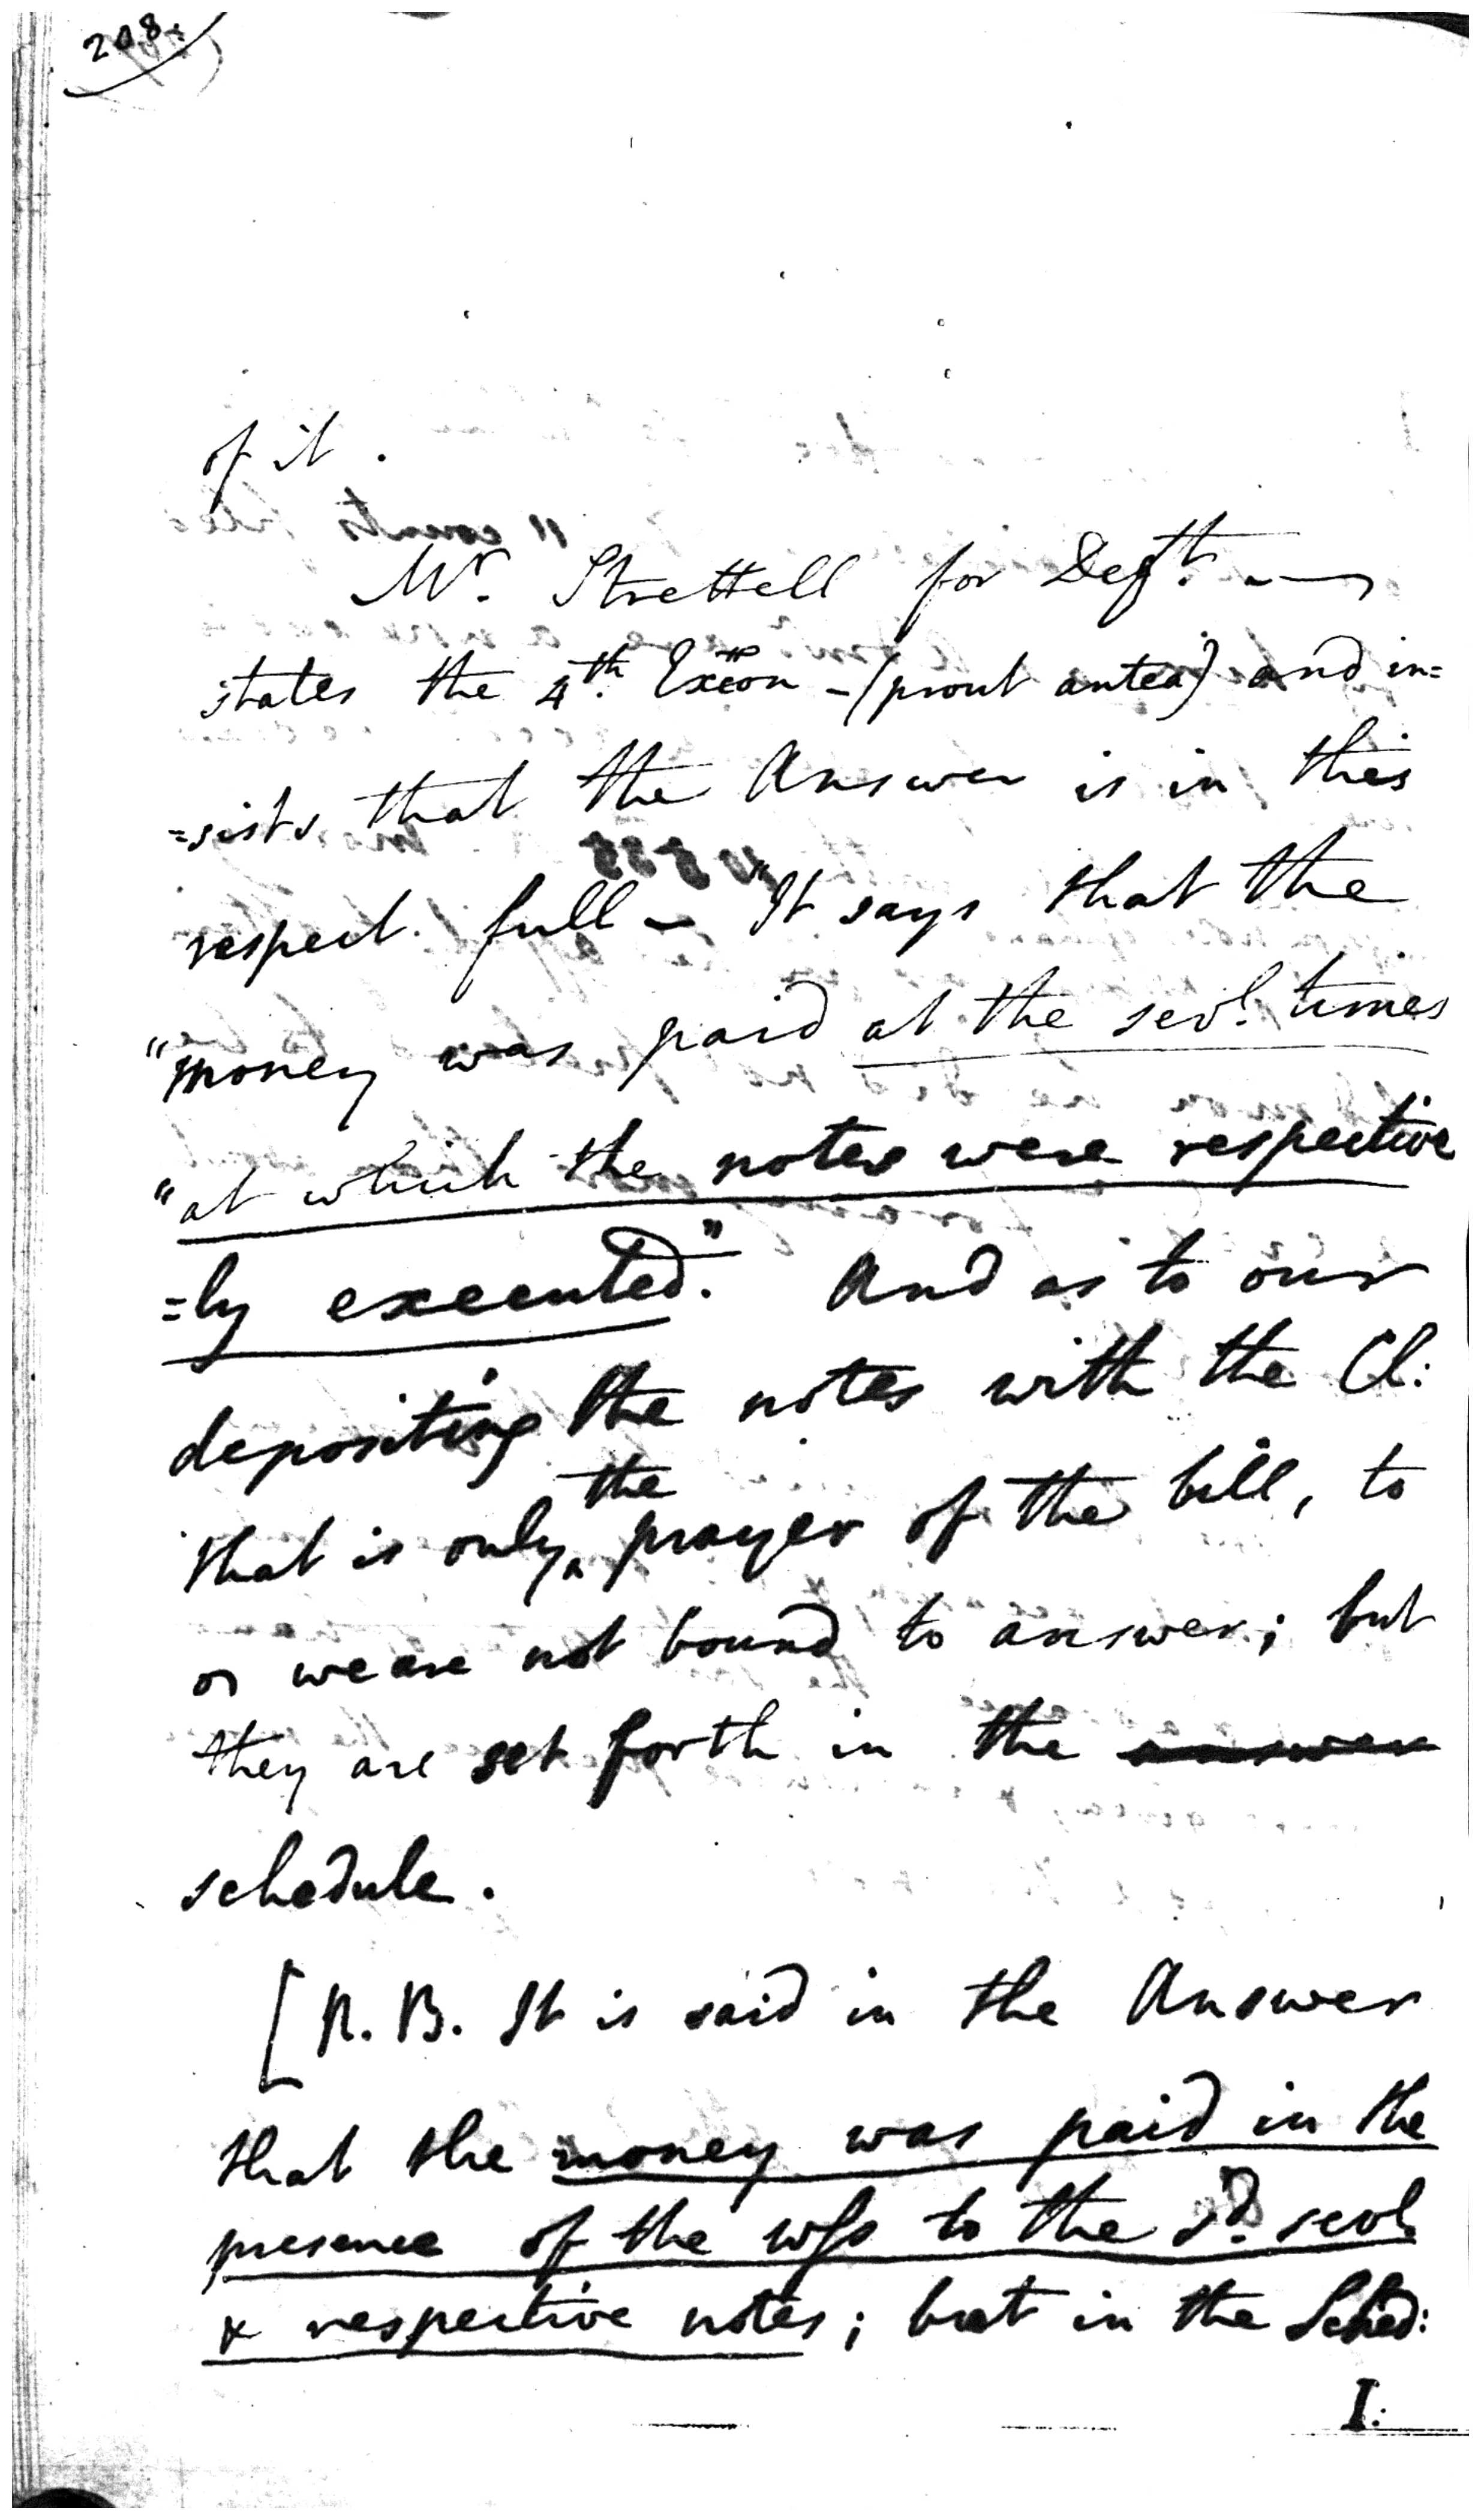 208.
of it.
Mr. Strettell for Deft. —
states the 4th. Excon - (prout antea) and in=
=sists that the Answer is in this
respect full — "It says that the
"money was paid at the sevl. times
"at which the notes were respective
=ly executed." And as to our
depositing the notes with the Cl:
that is only the prayer of the bill, to
or we are not bound to answer; but
they are set forth in the answer
schedule.
[N. B. It is said in the Answer
that the money was paid in the
presence of the wss to the sd. sevl.
& respective notes; but in the Sched:
I: